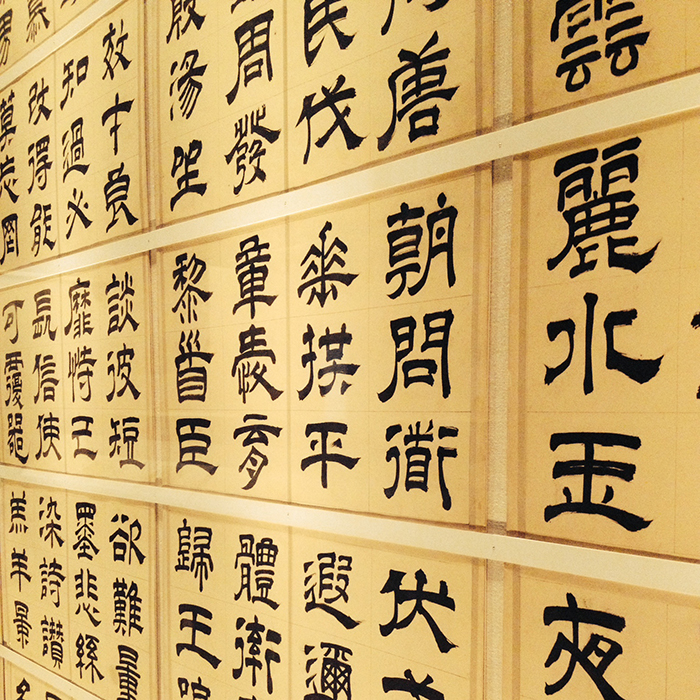 雲
麗水玉
夜
唐
民伐
周發
殷湯坐
朝問衜
垂拱平
章愛育
黎首臣
伏
遐邇
體率
歸王
慕
男
效才良
知過必
改得能
莫忘罔
談彼短
靡恃己
長信使
可覆器
欲難量
墨悲絲
染詩讚
羔羊景